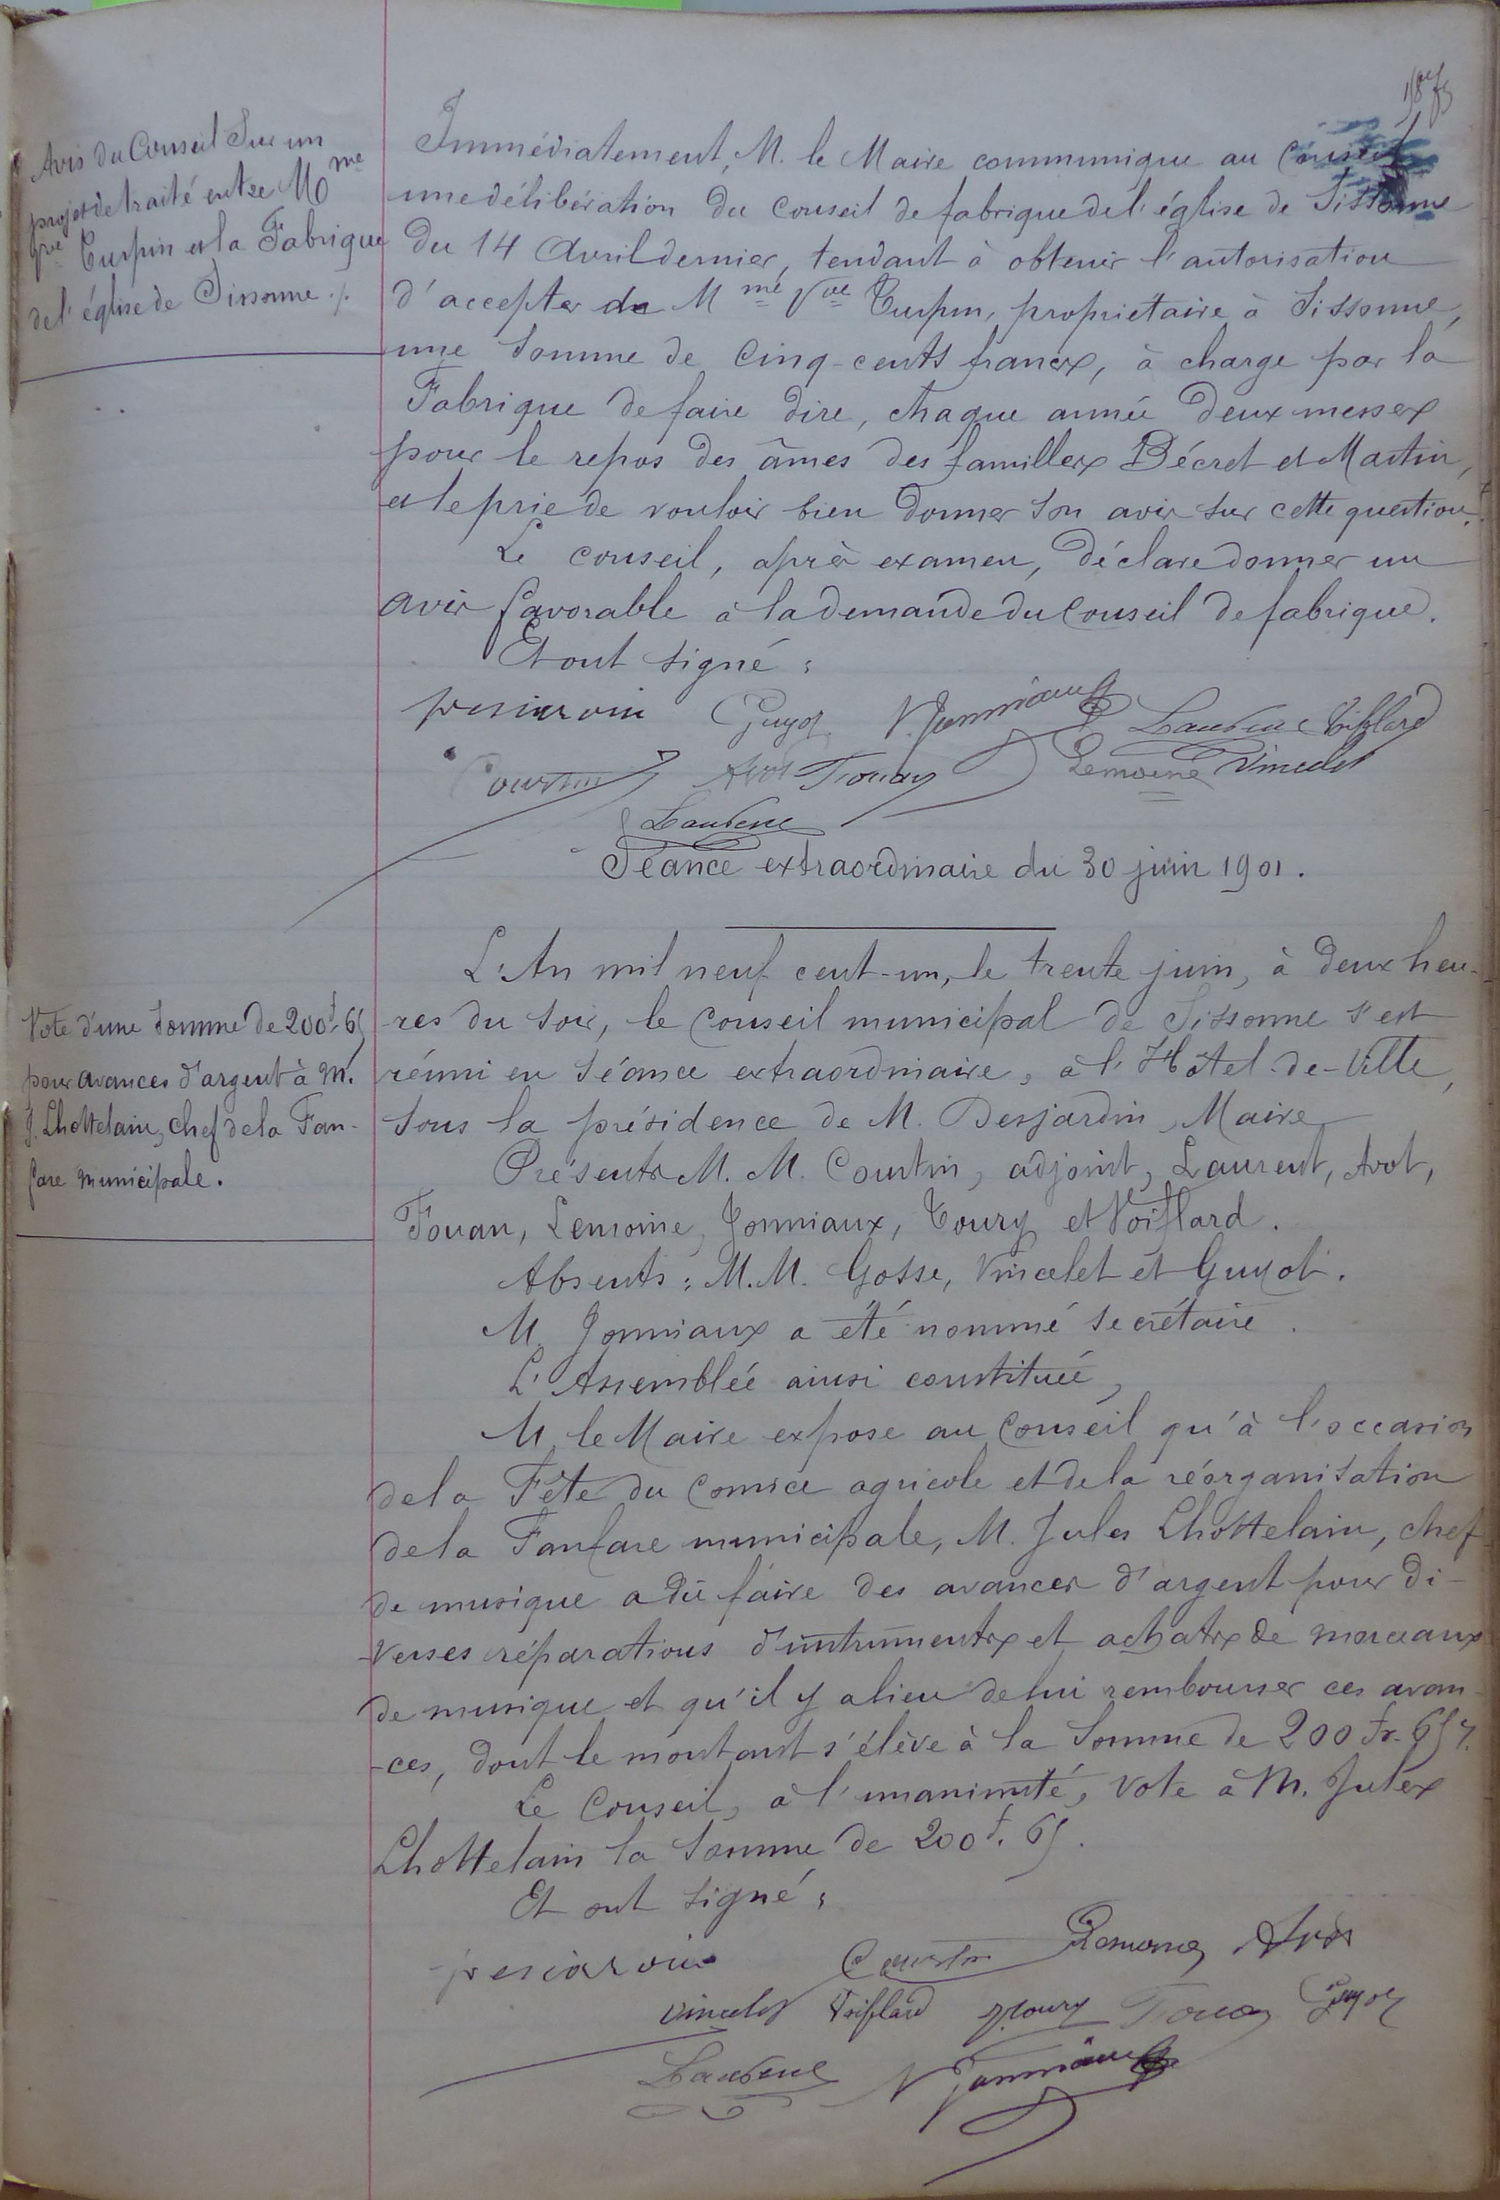 Avis du Conseil Sur un
projet de traité entre Mme
Vve Turpin et la Fabrique
de l'église de Sissonne ./.
Immédiatement, M. le Maire communique au Conseil
une délibération du Conseil de fabrique de l'église de Sissonne
du 14 Avril dernier, tendant à obtenir l'autorisation
d'accepter de Mme Vve Turpin, propriétaire à Sissonne,
une Somme de Cinq-cents francs, à charge par la
Fabrique de faire dire, chaque année deux messes
pour le repos des âmes des familles Décret et Martin,
et le prie de vouloir bien donner Son avis sur cette question.
Le Conseil, après examen, déclare donner un
avis favorable à la demande du Conseil de fabrique.
Et ont signé :
Guyot V. Jonniaux Laurent Voiflard
Courtin Avot Fouan Lemoine Vincelet
Séance extraordinaire du 30 juin 1901.
Vote d'une Somme de 200f. 65
pour avances d'argent à M.
J. Lhottelain, chef de la Fan-
fare municipale.
L'An mil neuf cent-un, le trente juin, à deux heu-
res du soir, le Conseil municipal de Sissonne s'est
réuni en Séance extraordinaire, à l'Hôtel-de-Ville,
Sous la présidence de M. Desjardin, Maire
Présents M. M. Courtin, adjoint, Laurent, Avot,
Fouan, Lemoine, Jonniaux, Toury et Voiflard.
Absents : M. M. Gosse, Vincelet et Guyot.
M. Jonniaux a été nommé Secrétaire.
L'Assemblée ainsi constituée,
M. le Maire expose au Conseil qu'à l'occasion
de la Fête du Comice agricole et de la réorganisation
de la Fanfare municipale, M. Jules Lhottelain, chef
de musique a dû faire des avances d'argent pour di-
verses réparations d'instruments et achats de morceaux
de musique et qu'il y a lieu de lui rembourser ces avan-
-ces, dont le montant s'élève à la Somme de 200 fr. 65
Le Conseil, à l'unanimité, vote à M. Jules
Lhottelain la Somme de 200f. 65.
Et ont signé :
Courtin Lemoine Avot
Vincelet Voiflard Toury Fouan Guyot
Laurent V Jonniaux